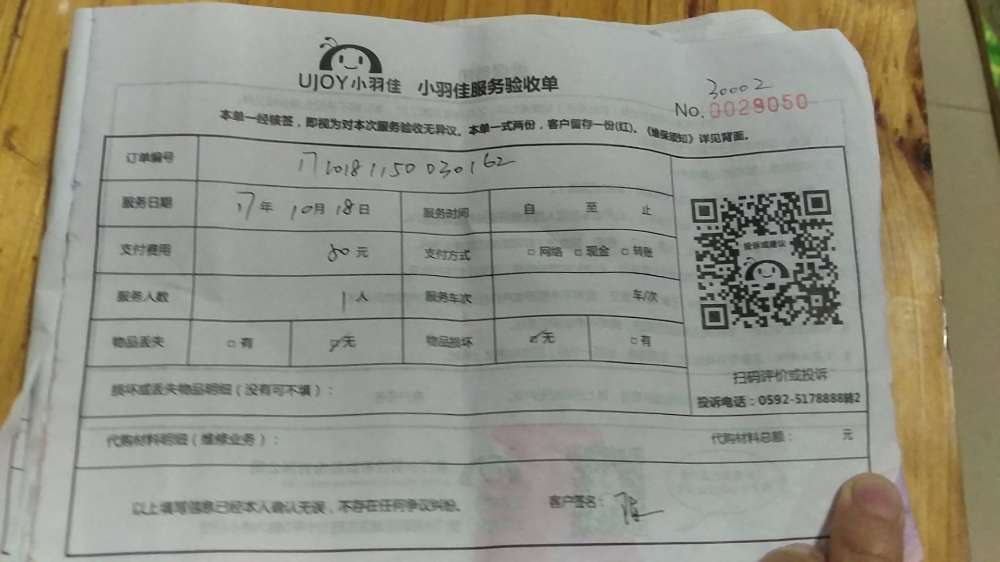 UJOY小羽佳 小羽佳服务验收单
30002
No.0029050
本单一经核签，即视为对本次服务验收无异议。本单一式两份，客户留存一份(红)。《维保须知》详见背面。
订单编号 1710181150030162
服务日期 17年 10月 18日 服务时间 自 至 止
支付费用 80元 支付方式 □网络 □现金 □转账
服务人数 1人 服务车次 车/次
物品丢失 □有 ☑无 物品损坏 ☑无 □有
投诉或建议
扫码评价或投诉
投诉电话：0592-5178888转2
损坏或丢失物品明细（没有可不填）：
代购材料明细（维修业务）： 代购材料总额： 元
以上填写信息已经本人确认无误，不存在任何争议纠纷。 客户签名：